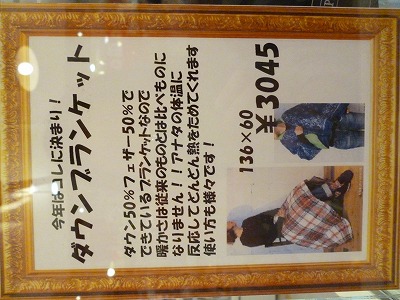 今年はコレに決まり!
ダウンブランケット
ダウン50%フェザー50%で
できているブランケットなので
暖かさは従来のものとは比べものに
なりません!!アナタの体温に
反応してどんどん熱をためてくれます
使い方も様々です!
136×60
¥3045